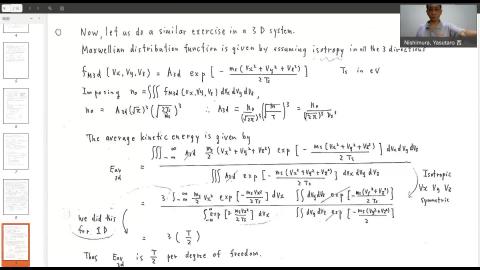 Now, let us do a similar exercise in a 3D system.
Maxwellian distribution function is given by assuming isotropy in all the 3 directions
f_M3d (Vx, Vy, Vz) = A3d exp [ - ms (Vx² + Vy² + Vz²) / 2Ts ] Ts in eV
Imposing n0 = ∭ f_M3d (Vx, Vy, Vz) dVx dVy dVz,
n0 = A3d (√π)³ (√(2Ts/ms))³ ∴ A3d =
The average kinetic energy is given by
Eav 3d = ∭_{-∞}^{∞} A3d ms/2 (Vx² + Vy² + Vz²) exp [ - ms (Vx² + Vy² + Vz²) / 2Ts ] dVx dVy dVz
∭ A3d exp [ - ms (Vx² + Vy² + Vz²) / 2Ts ] dVx dVy dVz
Isotropic
Vx Vy Vz
symmetric
= 3 ∫_{-∞}^{∞} ms/2 Vx² exp [ - ms Vx² / 2Ts ] dVx ∬ dVy dVz exp [ - ms (Vy² + Vz²) / 2Ts ]
we did this
for 1D
= 3 ( T / 2 )
Thus Eav 3d is T/2 per degree of freedom.
Nishimura, Yasutaro
4
5
6
7
8